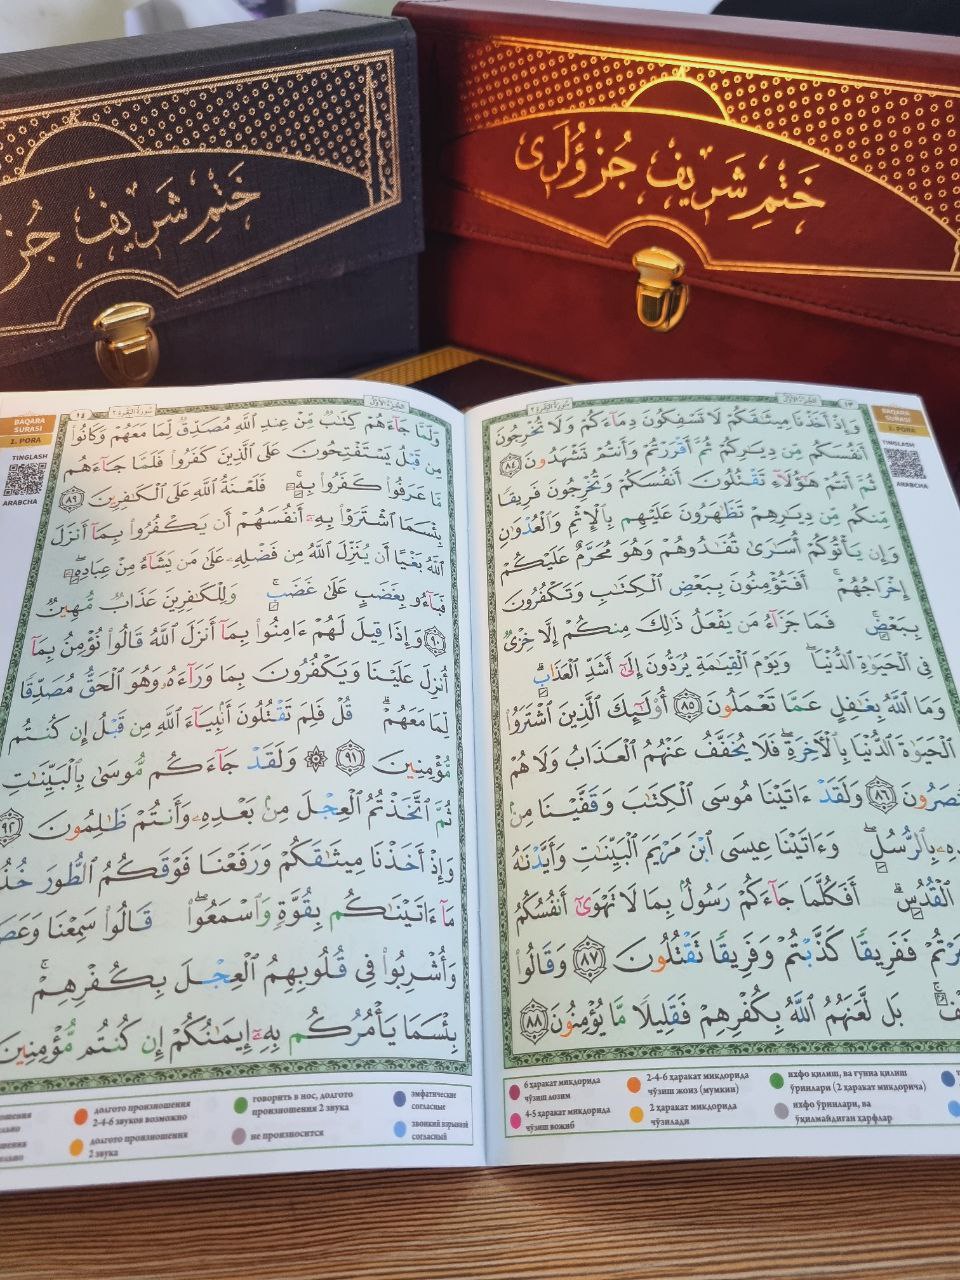 ختم شريف جز
ختم شريف جزؤلرى
١٣
سورة البقرة ٢
الجزء الأول
BAQARA
SURASI
1. PORA
TINGLASH
ARABCHA
وَإِذْ أَخَذْنَا مِيثَٰقَكُمْ لَا تَسْفِكُونَ دِمَآءَكُمْ وَلَا تُخْرِجُونَ
أَنفُسَكُم مِّن دِيَٰرِكُمْ ثُمَّ أَقْرَرْتُمْ وَأَنتُمْ تَشْهَدُونَ ٨٤
ثُمَّ أَنتُمْ هَٰٓؤُلَآءِ تَقْتُلُونَ أَنفُسَكُمْ وَتُخْرِجُونَ فَرِيقًا
مِّنكُم مِّن دِيَٰرِهِمْ تَظَٰهَرُونَ عَلَيْهِم بِٱلْإِثْمِ وَٱلْعُدْوَٰنِ
وَإِن يَأْتُوكُمْ أُسَٰرَىٰ تُفَٰدُوهُمْ وَهُوَ مُحَرَّمٌ عَلَيْكُمْ
إِخْرَاجُهُمْ ۚ أَفَتُؤْمِنُونَ بِبَعْضِ ٱلْكِتَٰبِ وَتَكْفُرُونَ
بِبَعْضٍ ۚ فَمَا جَزَآءُ مَن يَفْعَلُ ذَٰلِكَ مِنكُمْ إِلَّا خِزْىٌ
فِى ٱلْحَيَوٰةِ ٱلدُّنْيَا ۖ وَيَوْمَ ٱلْقِيَٰمَةِ يُرَدُّونَ إِلَىٰٓ أَشَدِّ ٱلْعَذَابِ ۗ
وَمَا ٱللَّهُ بِغَٰفِلٍ عَمَّا تَعْمَلُونَ ٨٥ أُو۟لَٰٓئِكَ ٱلَّذِينَ ٱشْتَرَوُا۟
ٱلْحَيَوٰةَ ٱلدُّنْيَا بِٱلْأَخِرَةِ ۖ فَلَا يُخَفَّفُ عَنْهُمُ ٱلْعَذَابُ وَلَا هُمْ
نصَرُونَ ٨٦ وَلَقَدْ ءَاتَيْنَا مُوسَى ٱلْكِتَٰبَ وَقَفَّيْنَا مِنۢ
دِهِۦ بِٱلرُّسُلِ ۖ وَءَاتَيْنَا عِيسَى ٱبْنَ مَرْيَمَ ٱلْبَيِّنَٰتِ وَأَيَّدْنَٰهُ
ٱلْقُدُسِ ۗ أَفَكُلَّمَا جَآءَكُمْ رَسُولٌۢ بِمَا لَا تَهْوَىٰٓ أَنفُسُكُمُ
بَرْتُمْ فَفَرِيقًا كَذَّبْتُمْ وَفَرِيقًا تَقْتُلُونَ ٨٧ وَقَالُوا۟
لْفٌ ۚ بَل لَّعَنَهُمُ ٱللَّهُ بِكُفْرِهِمْ فَقَلِيلًا مَّا يُؤْمِنُونَ ٨٨
6 ҳаракат миқдорида
чўзиш лозим
2-4-6 ҳаракат миқдорида
чўзиш жоиз (мумкин)
ихфо қилиш, ва ғунна қилиш
ўринлари (2 ҳаракат миқдорича)
4-5 ҳаракат миқдорида
чўзиш вожиб
2 ҳаракат миқдорида
чўзилади
ихфо ўринлари, ва
ўқилмайдиган ҳарфлар
الجزء الأول
سورة البقرة ٢
BAQARA
SURASI
1. PORA
TINGLASH
ARABCHA
وَلَمَّا جَآءَهُمْ كِتَٰبٌ مِّنْ عِندِ ٱللَّهِ مُصَدِّقٌ لِّمَا مَعَهُمْ وَكَانُوا۟
مِن قَبْلُ يَسْتَفْتِحُونَ عَلَى ٱلَّذِينَ كَفَرُوا۟ فَلَمَّا جَآءَهُم
مَّا عَرَفُوا۟ كَفَرُوا۟ بِهِۦ ۚ فَلَعْنَةُ ٱللَّهِ عَلَى ٱلْكَٰفِرِينَ ٨٩
بِئْسَمَا ٱشْتَرَوْا۟ بِهِۦٓ أَنفُسَهُمْ أَن يَكْفُرُوا۟ بِمَآ أَنزَلَ
ٱللَّهُ بَغْيًا أَن يُنَزِّلَ ٱللَّهُ مِن فَضْلِهِۦ عَلَىٰ مَن يَشَآءُ مِنْ عِبَادِهِۦ ۖ
فَبَآءُو بِغَضَبٍ عَلَىٰ غَضَبٍ ۚ وَلِلْكَٰفِرِينَ عَذَابٌ مُّهِينٌ
٩٠ وَإِذَا قِيلَ لَهُمْ ءَامِنُوا۟ بِمَآ أَنزَلَ ٱللَّهُ قَالُوا۟ نُؤْمِنُ بِمَآ
أُنزِلَ عَلَيْنَا وَيَكْفُرُونَ بِمَا وَرَآءَهُۥ وَهُوَ ٱلْحَقُّ مُصَدِّقًا
لِّمَا مَعَهُمْ ۗ قُلْ فَلِمَ تَقْتُلُونَ أَنۢبِيَآءَ ٱللَّهِ مِن قَبْلُ إِن كُنتُم
مُّؤْمِنِينَ ٩١ ۞ وَلَقَدْ جَآءَكُم مُّوسَىٰ بِٱلْبَيِّنَٰتِ
ثُمَّ ٱتَّخَذْتُمُ ٱلْعِجْلَ مِنۢ بَعْدِهِۦ وَأَنتُمْ ظَٰلِمُونَ ٩٢
وَإِذْ أَخَذْنَا مِيثَٰقَكُمْ وَرَفَعْنَا فَوْقَكُمُ ٱلطُّورَ خُذُ
مَآ ءَاتَيْنَٰكُم بِقُوَّةٍ وَٱسْمَعُوا۟ ۖ قَالُوا۟ سَمِعْنَا وَعَصَ
وَأُشْرِبُوا۟ فِى قُلُوبِهِمُ ٱلْعِجْلَ بِكُفْرِهِمْ ۚ
بِئْسَمَا يَأْمُرُكُم بِهِۦٓ إِيمَٰنُكُمْ إِن كُنتُم مُّؤْمِنِينَ
долгото произношения
2-4-6 звуков возможно
говорить в нос, долгото
произношения 2 звука
эмфатические
согласные
долгото произношения
2 звука
не произносится
звонкий взрывной
согласный